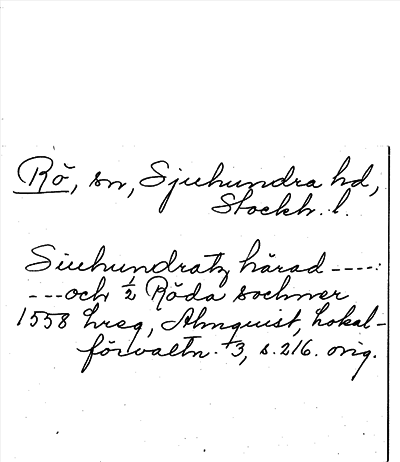 Rö, sn, Sjuhundra hd,
Stockh. l.
Siuhundratz härad ----:
---och ½ Röda sochner
1558 hreg, Almquist, lokal-
förvaltn. 3, s. 216. orig.